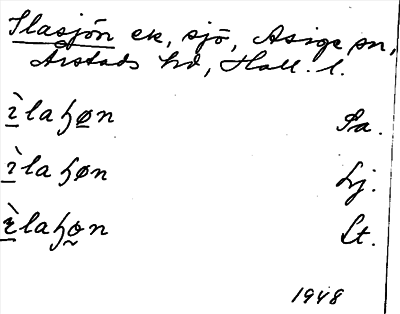 Ilasjön ek, sjö, Asige sn,
Årstads hd, Hall. l.
ìlaɧøn Sa.
ìlaɧøn Lj.
ìlaɧo̰n Lt.
1948